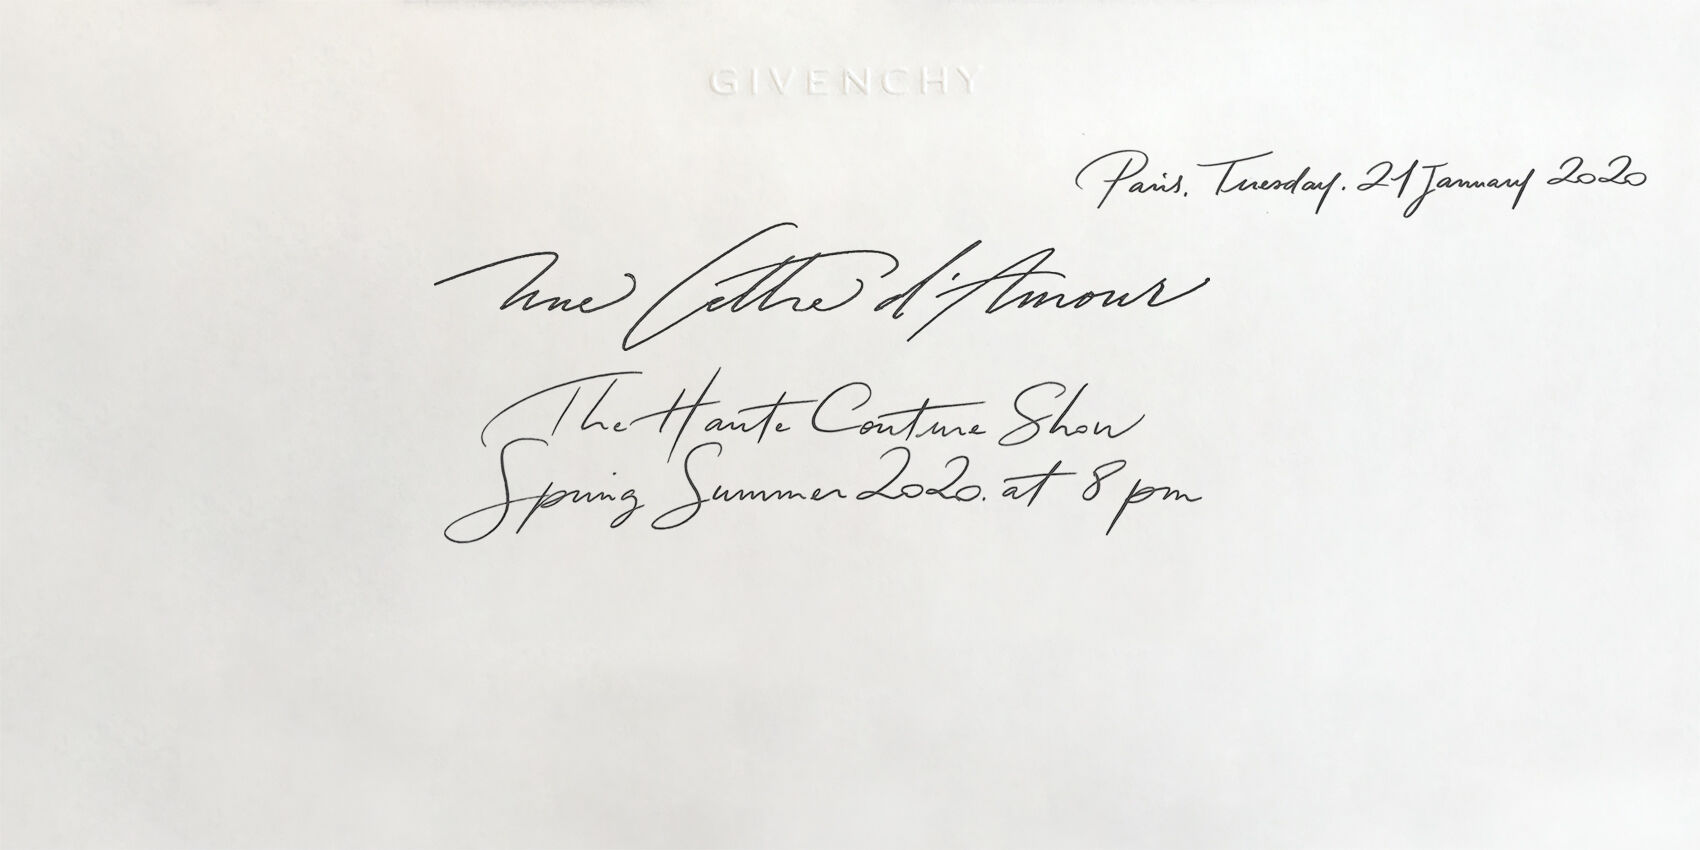 GIVENCHY
Paris. Tuesday. 21 January 2020
Une Lettre d'Amour
The Haute Couture Show
Spring Summer 2020. at 8 pm